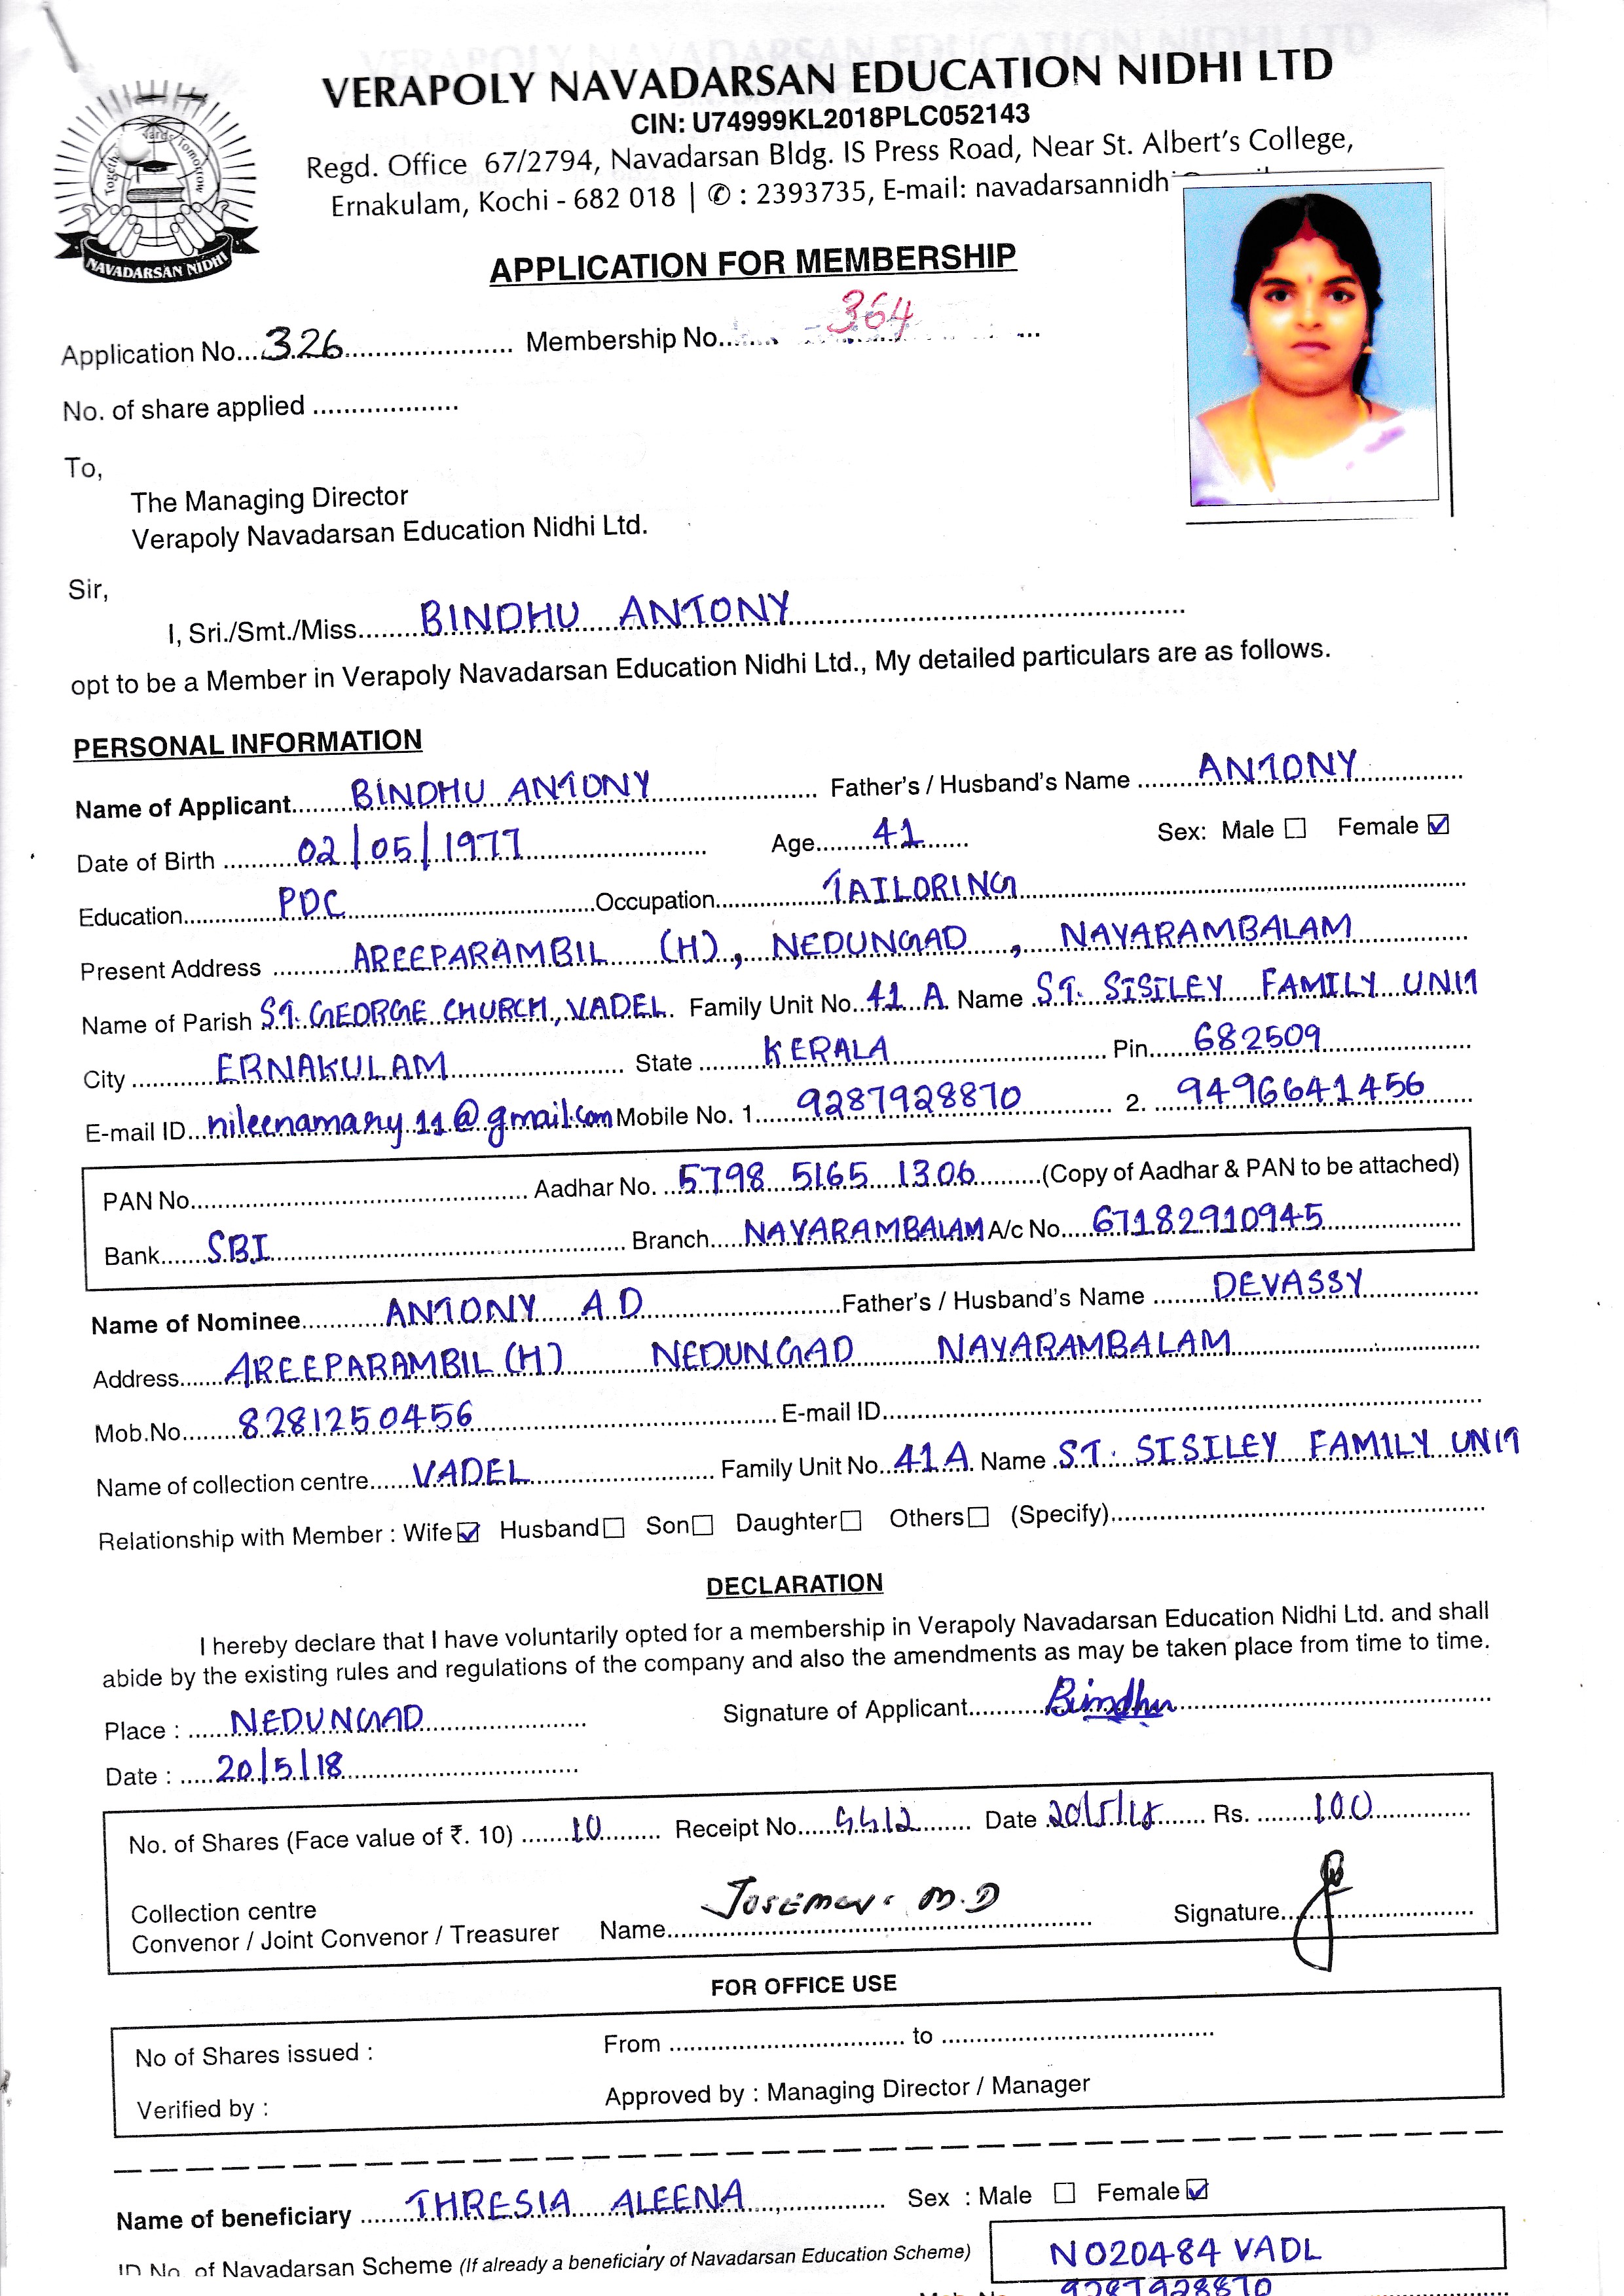 VERAPOLY NAVADARSAN EDUCATION NIDHI LTD
CIN: U74999KL2018PLC052143
Regd. Office 67/2794, Navadarsan Bldg. IS Press Road, Near St. Albert's College,
Ernakulam, Kochi - 682 018 | ✆ : 2393735, E-mail: navadarsannidh
Together Towards Tomorrow
NAVADARSAN NIDHI
APPLICATION FOR MEMBERSHIP
Application No....326.................... Membership No....... 364 ...
No. of share applied ....................
To,
The Managing Director
Verapoly Navadarsan Education Nidhi Ltd.
Sir,
I, Sri./Smt./Miss........BINDHU ANTONY................................
opt to be a Member in Verapoly Navadarsan Education Nidhi Ltd., My detailed particulars are as follows.
PERSONAL INFORMATION
Name of Applicant........BINDHU ANTONY.................... Father's / Husband's Name ........ANTONY............
Date of Birth ..........02/05/1977.................... Age........41........ Sex: Male ☐ Female ☑
Education............PDC........................Occupation............TAILORING....................
Present Address ..........AREEPARAMBIL (H), NEDUNGAD , NAYARAMBALAM..........
Name of Parish ST. GEORGE CHURCH, VADEL. Family Unit No. 41 A Name ST. SISILEY FAMILY UNIT
City ..........ERNAKULAM.................... State ........KERALA.................... Pin......682509..........
E-mail ID...nileenamary11@gmail.com Mobile No. 1......9287928870.......... 2. ...9496641456......
PAN No........................................ Aadhar No. ..5798 5165 1306........(Copy of Aadhar & PAN to be attached)
Bank.......SBI........................................ Branch.....NAYARAMBALAM A/c No.....67182910945............
Name of Nominee..........ANTONY A D....................Father's / Husband's Name ........DEVASSY............
Address.......AREEPARAMBIL (H) NEDUNGAD NAYARAMBALAM....................
Mob.No........8281250456........................ E-mail ID........................................
Name of collection centre.....VADEL.................... Family Unit No. 41 A Name ST. SISILEY FAMILY UNIT
Relationship with Member : Wife ☑ Husband ☐ Son ☐ Daughter ☐ Others ☐ (Specify)..............................
DECLARATION
I hereby declare that I have voluntarily opted for a membership in Verapoly Navadarsan Education Nidhi Ltd. and shall
abide by the existing rules and regulations of the company and also the amendments as may be taken place from time to time.
Place : ......NEDUNGAD.................... Signature of Applicant..........Bindhu..............................
Date : .....20/5/18..............................
No. of Shares (Face value of ₹. 10) .......10......... Receipt No.....4412........ Date 20/5/18........ Rs. ........100............
Collection centre
Convenor / Joint Convenor / Treasurer Name.....Josemon. M.D............... Signature....................
FOR OFFICE USE
No of Shares issued : From .............................. to ..............................
Verified by : Approved by : Managing Director / Manager
Name of beneficiary ......THRESIA ALEENA.................. Sex : Male ☐ Female ☑
ID No. of Navadarsan Scheme (If already a beneficiary of Navadarsan Education Scheme) N020484 VADL
Mob. No. 9287928870